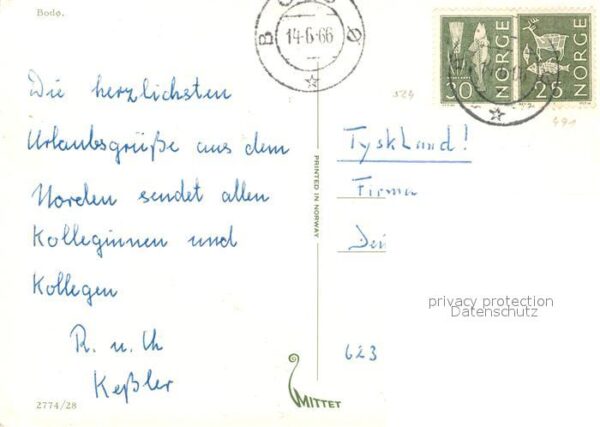 Bodø.
BODØ
14-6-66
NORGE
30
NORGE
25
Die herzlichsten
Urlaubsgrüße aus dem
Norden sendet allen
Kolleginnen und
Kollegen
R. u. Ch
Keßler
PRINTED IN NORWAY
524
Tyskland!
Firma
623
privacy protection
Datenschutz
MITTET
2774/28